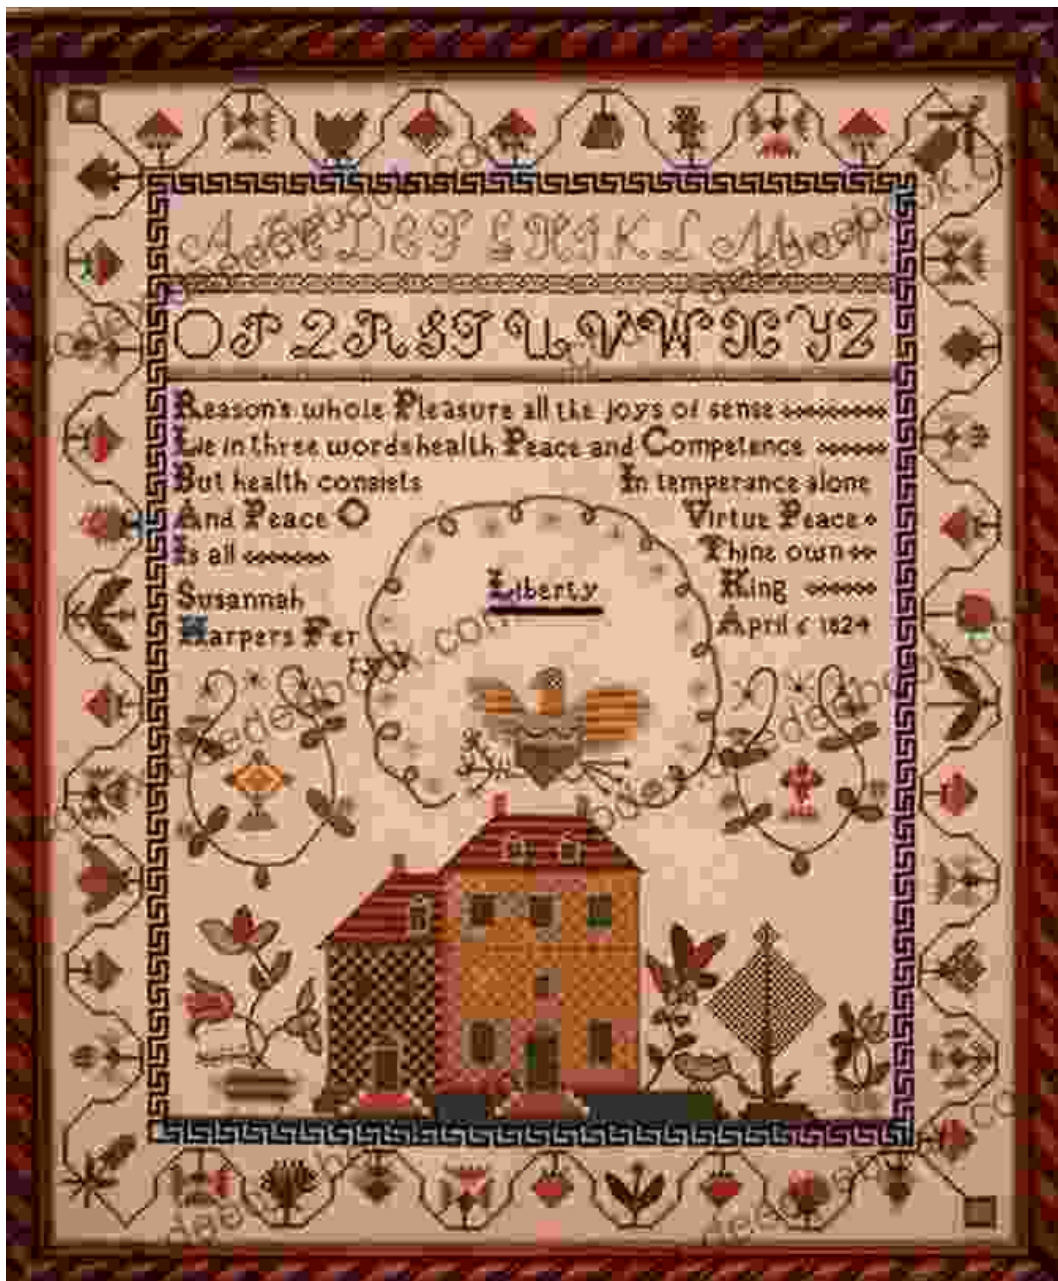 A B C D E F G H I K L M N
O P Q R S T U V W X Y Z
Reason's whole Pleasure all the joys of sense
Lie in three words health Peace and Competence
But health consists In temperance alone
And Peace O Virtue Peace
Is all Thine own
Liberty
Susannah King
Harpers Fer April 6 1824